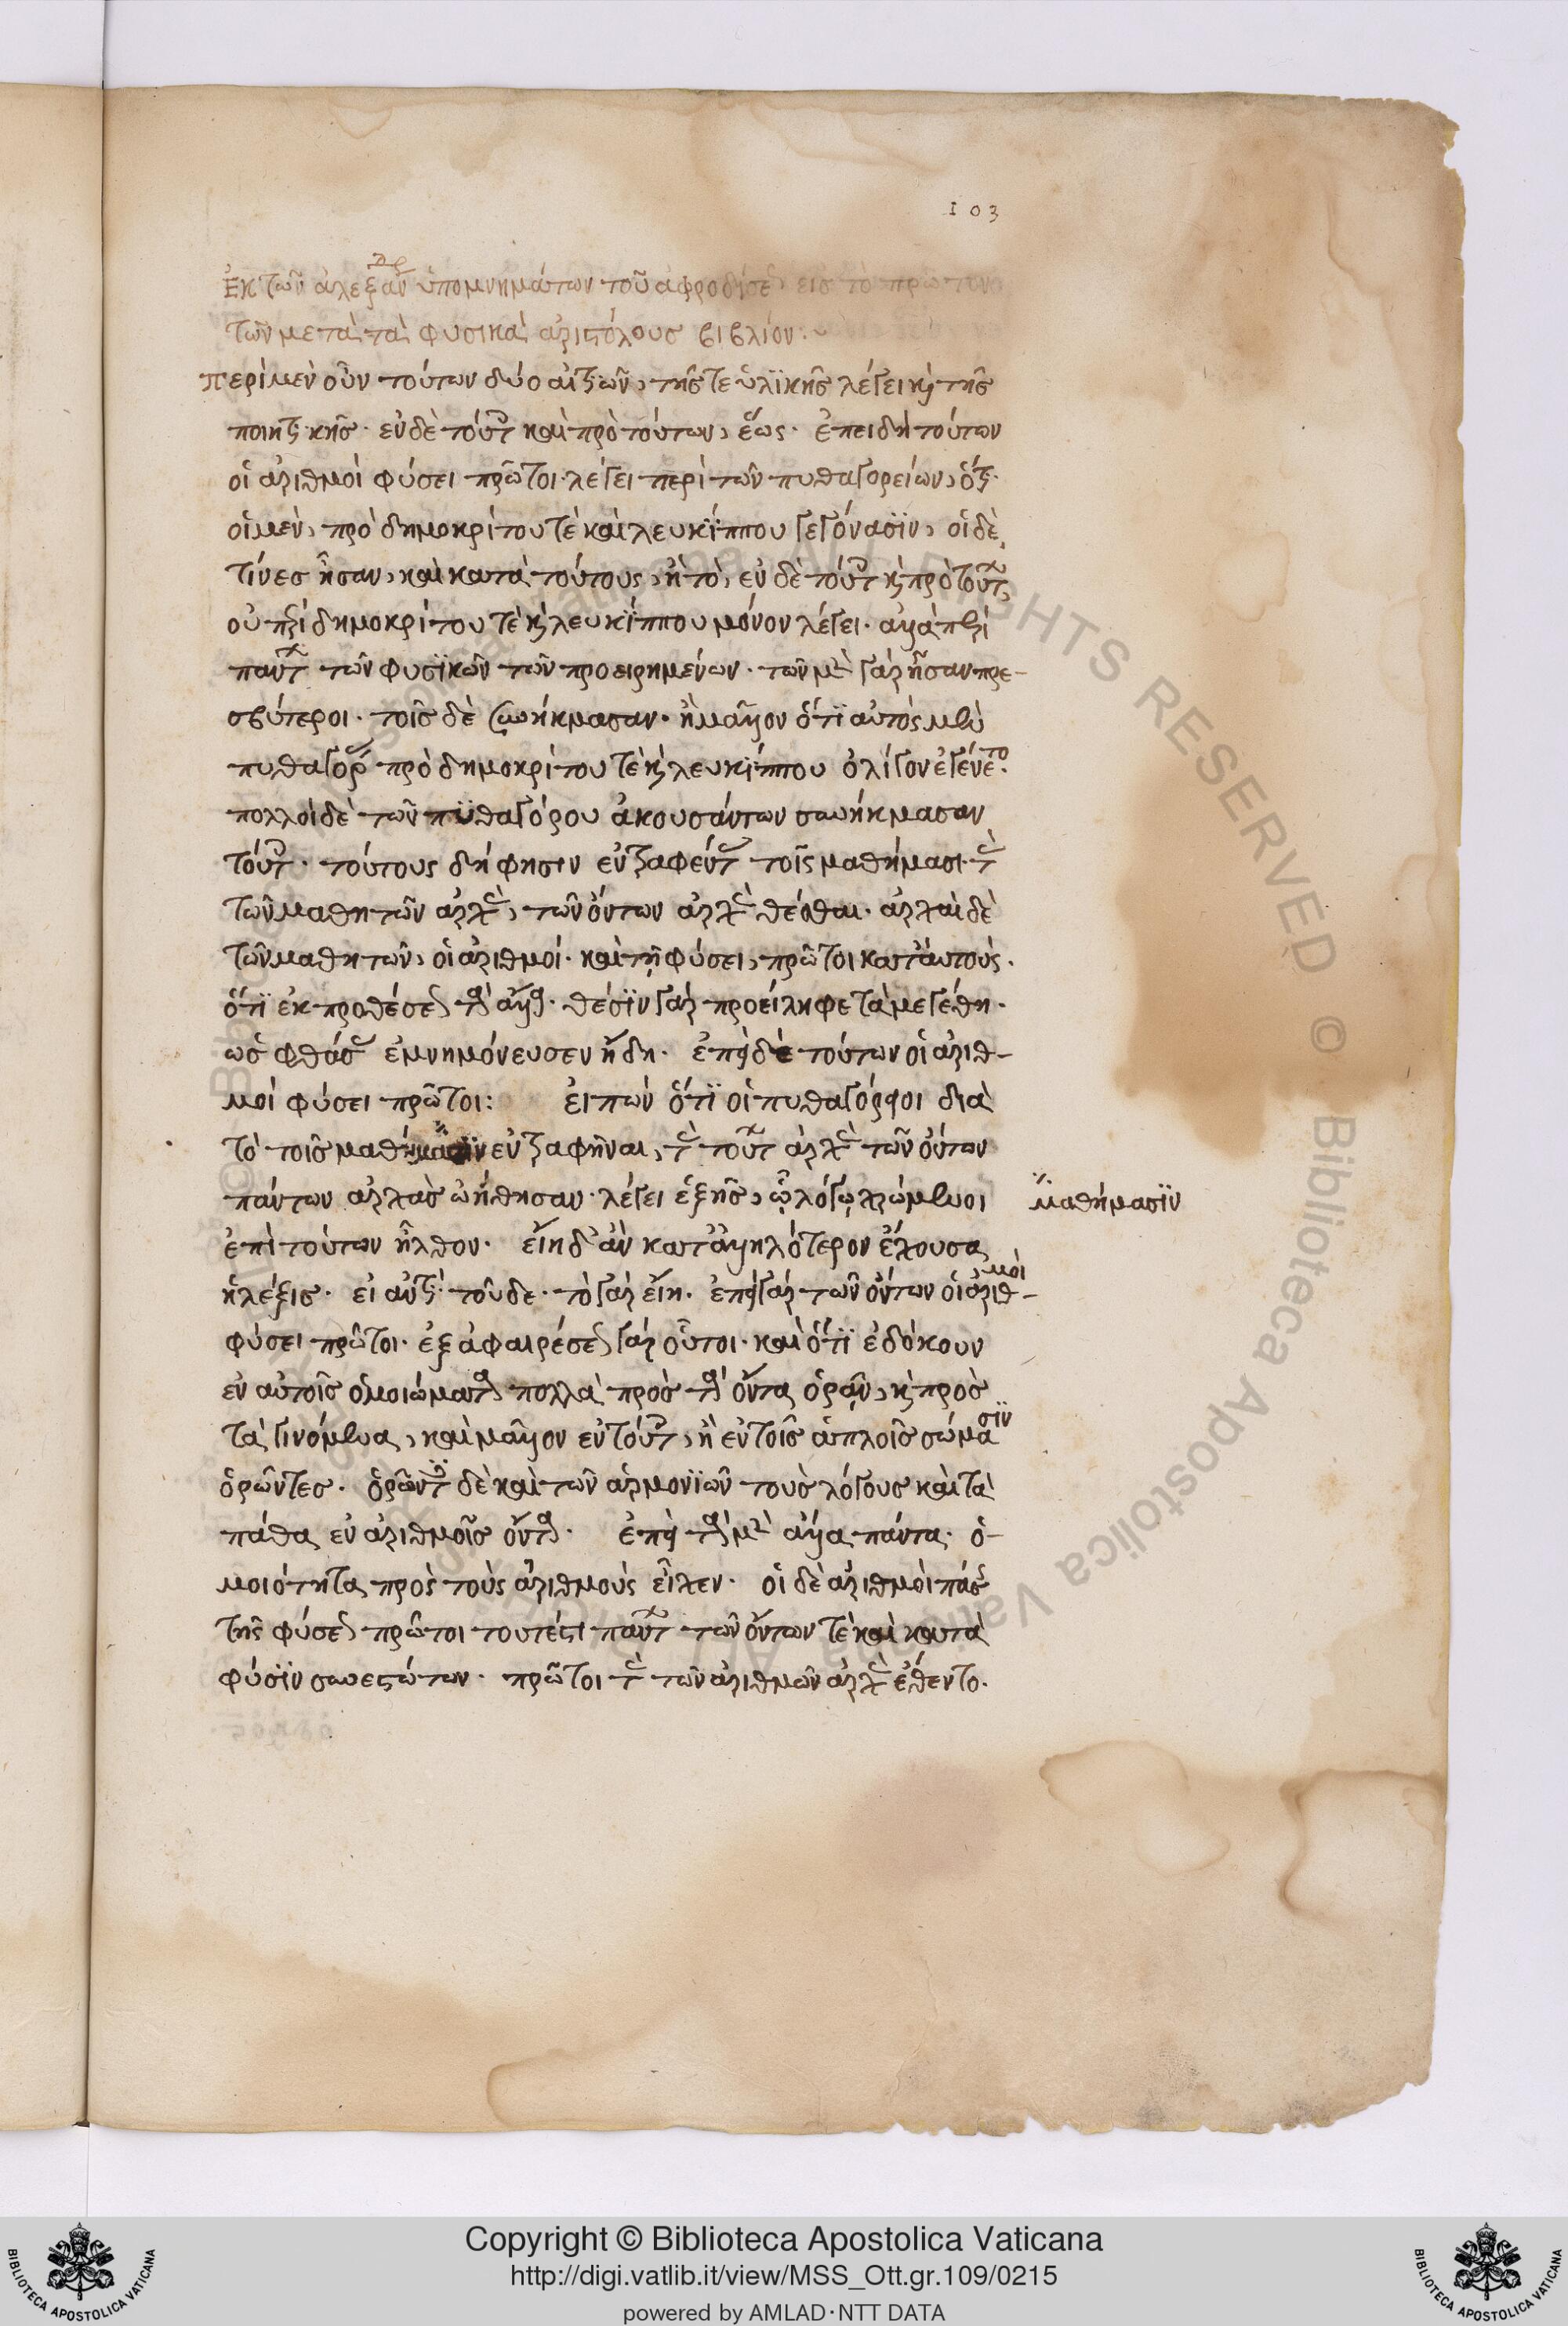 103
Ἐκ τῶν ἀλεξάνδρ ὑπομνημάτων τοῦ ἀφροδισέ εἰς τὸ πρῶτον
τῶν μετὰ τὰ φυσικὰ ἀριστλους βιβλίον:
περὶ μὲν οὖν τούτων δύο αἰτιῶν, τῆς τε ὑλϊκῆς λέγει κ τῆς
ποιητικῆς· ἐν δὲ τούτ καὶ πρὸ τούτων, ἕως· ἐπειδὴ τούτων
οἱ ἀριθμοὶ φύσει πρῶτοι· λέγει περὶ τῶν πυθαγορείων, ὅτι·
οἱ μὲν, πρὸ δημοκρίτου τὲ καὶ λευκϊππου γεγόνασϊν, οἱ δὲ
τίνες ἦσαν, καὶ κατὰ τούτους, ἢ τὸ, ἐν δὲ τούτ κ πρὸ τούτ,
οὐ περὶ δημοκρίτου τὲ κ λευκϊππου μόνον λέγει· ἀλλὰ περὶ
πάντ τῶν φυσϊκῶν τῶν προειρημένων· τῶν μὲν γὰρ ἦσαν πρε-
σβύτεροι· τοῖς δὲ συνήκμασαν· ἢ μᾶλλον ὅτϊ αὐτὸς μὲν
πυθαγόρ πρὸ δημοκρίτου τὲ κ λευκϊππου ὀλίγον ἐγένετο·
πολλοὶ δὲ τῶν πϋθαγόρου ἀκουσάντων συνήκμασαν
τούτ· τούτους δή φησιν ἐντραφέντ τοῖς μαθήμασι· τ
τῶν μαθητῶν ἀρχ, τῶν ὄντων ἀρχ θέσθαι· ἀρχαὶ δὲ
τῶν μαθητῶν, οἱ ἀριθμοί· καὶ τῇ φύσει, πρῶτοι κατ' αὐτούς·
ὅτϊ ἐκ προθέσε τὰ ἄλλα· θέσϊν γὰρ προείληφε τὰ μεγέθη·
ὡς φθάσ ἐμνημόνευσεν ἤδη· ἐπεὶ δὲ τούτων οἱ ἀριθ-
μοὶ φύσει πρῶτοι: εἰπὼν ὅτϊ οἱ πυθαγόρειοι διὰ
τὸ τοῖς μαθήμασϊν ἐντραφῆναι, τ τούτ ἀρχ τῶν ὄντων
πάντων ἀρχὰς ᾠήθησαν· λέγει ἑξῆς, ᾧ λόγῳ χρώμενοι
μαθήμασϊν
ἐπὶ τούτων ἦλθον· εἴη δ' ἂν καταλληλότερον ἔχουσα
ἡ λέξις· εἰ ἀντὶ τοῦ δὲ· τὸ γὰρ εἴη· ἐπεὶ γὰρ τῶν ὄντων οἱ ἀριθ-μοὶ
φύσει πρῶτοι· ἐξ ἀφαιρέσε γὰρ οὗτοι· καὶ ὅτϊ ἐδόκουν
ἐν αὐτοῖς ὁμοιώματα πολλὰ πρὸς τὰ ὄντα ὁρᾶν, κ πρὸς
τὰ γινόμενα, καὶ μᾶλλον ἐν τούτ, ἢ ἐν τοῖς ἁπλοῖς σώμασϊν
ὁρῶντες· ὁρῶντ δὲ καὶ τῶν ἁρμονϊῶν τοὺς λόγους καὶ τὰ
πάθα ἐν ἀριθμοῖς ὄντα· ἐπεὶ τὰ μὲν ἄλλα πάντα· ὁ-
μοιότητα πρὸς τοὺς ἀριθμοὺς εἶχεν· οἱ δὲ ἀριθμοὶ πάσ
τῆς φύσε πρῶτοι τουτέστι πάντ τῶν ὄντων τὲ καὶ κατὰ
φύσϊν συνεστώτων· πρῶτοι τ τῶν ἀριθμῶν ἀρχ ἔθεντο·
Copyright © Biblioteca Apostolica Vaticana
http://digi.vatlib.it/view/MSS_Ott.gr.109/0215
powered by AMLAD·NTT DATA
BIBLIOTECA APOSTOLICA VATICANA
BIBLIOTECA APOSTOLICA VATICANA